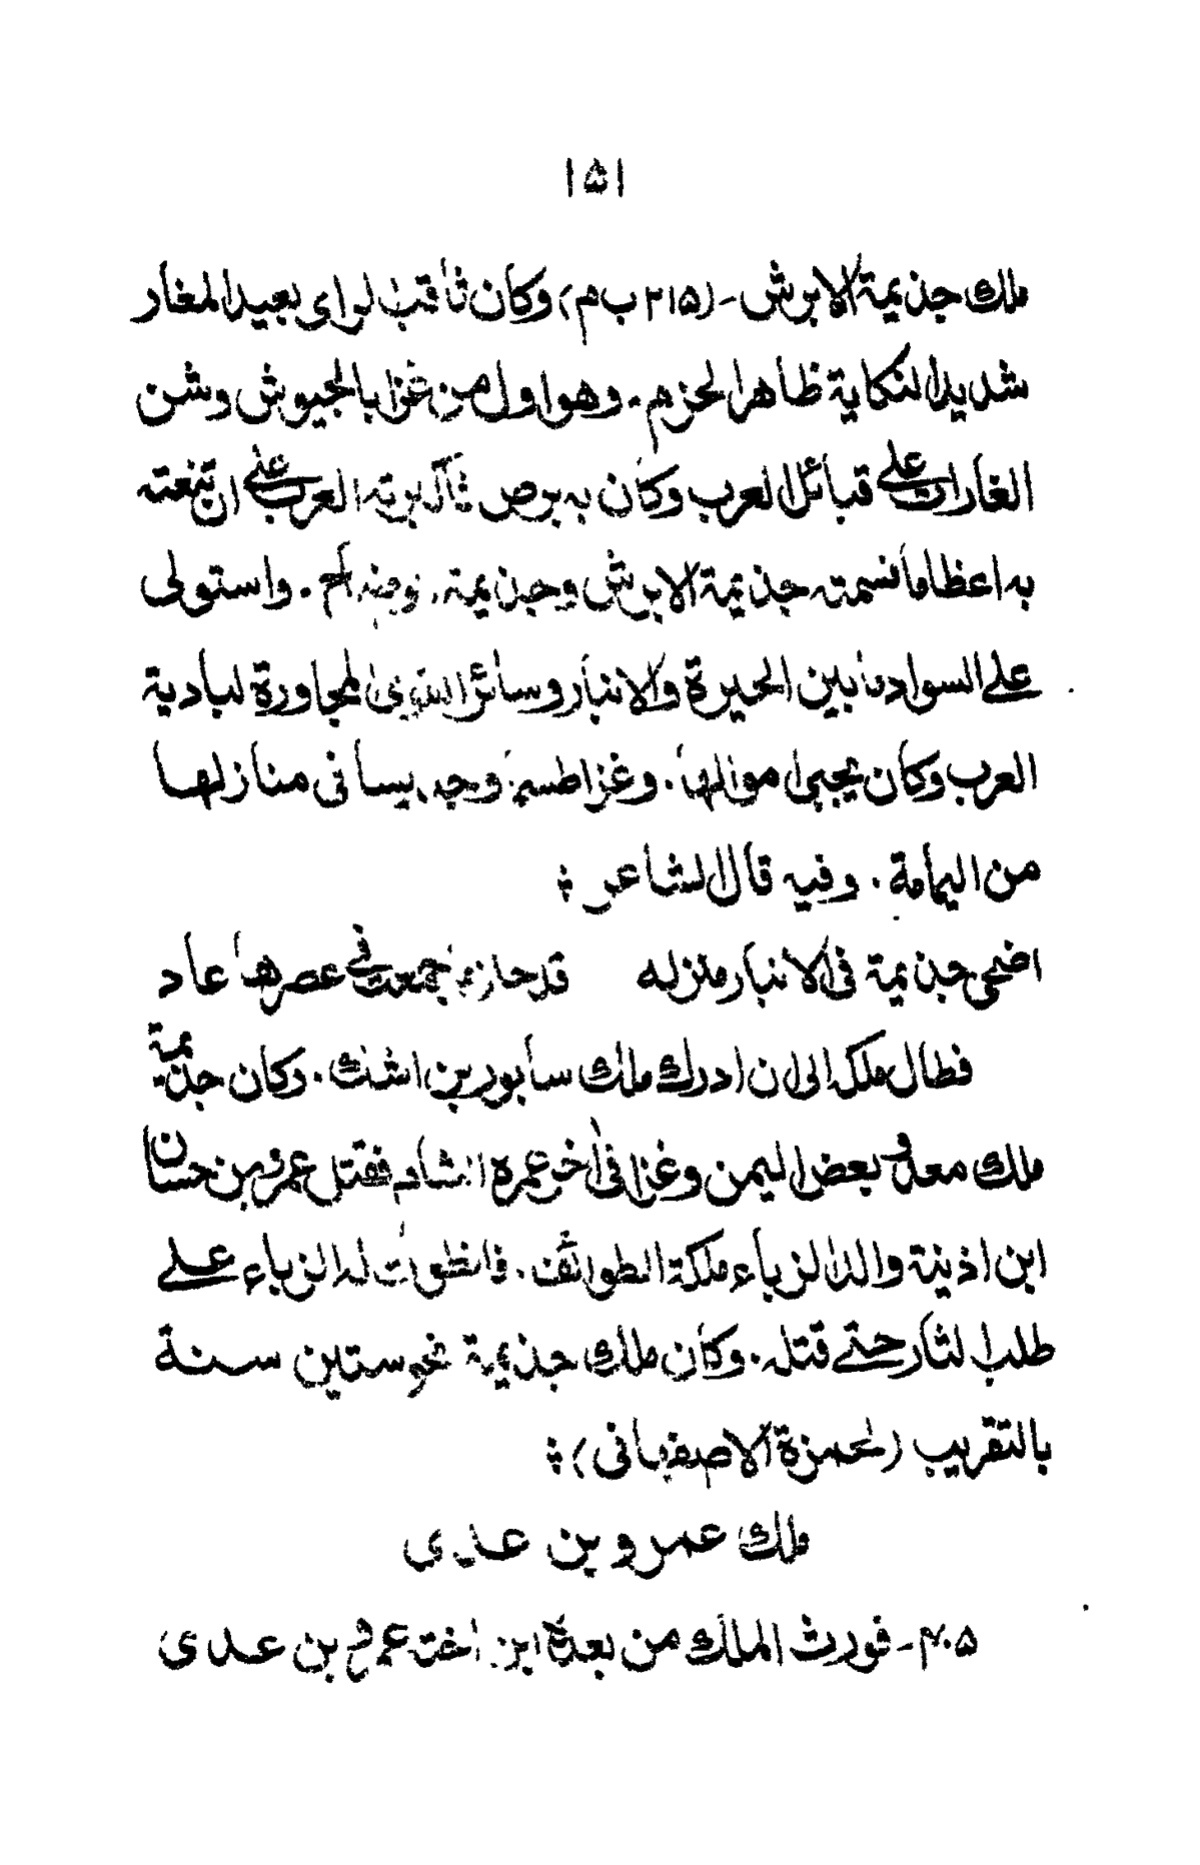 ١۵١
ملك جذيمة الابرش - (٢١۵ ب م) وكان ثاقب الراى بعيد المغار
شديد النكاية ظاهر الحزم . وهو اول من غزا بالجيوش وشن
الغارات على قبائل العرب وكان به برص العرب عن ان تنعته
به اعظاما فسمته جذيمة الابرش وجذيمة . واستولى
على السواد ما بين الحيرة والانبار وسائر القرى المجاورة لبادية
العرب وكان يجبى اموالها . وغزا طسم وجديسا فى منازلها
من اليمامة . وفيه قال الشاعر :
اضحى جذيمة فى الانبار منزله قد حاز ما جمعت فى عصرها عاد
فطال ملكه الى ان ادرك ملك سابور بن اشك . وكان جذيمة
ملك معد وبعض اليمن وغزا فى آخر عمره الشام فقتل عمرو بن حسان
ابن اذينة والد الزباء ملكة الطوائف . فانطوت له الزباء على
طلب الثار حتى قتله . وكان ملك جذيمة نحو ستين سنة
بالتقريب (لحمزة الاصفهانى) :
ملك عمرو بن عدى
۴٠۵ - فورث الملك من بعده ابن اخته عمرو بن عدى